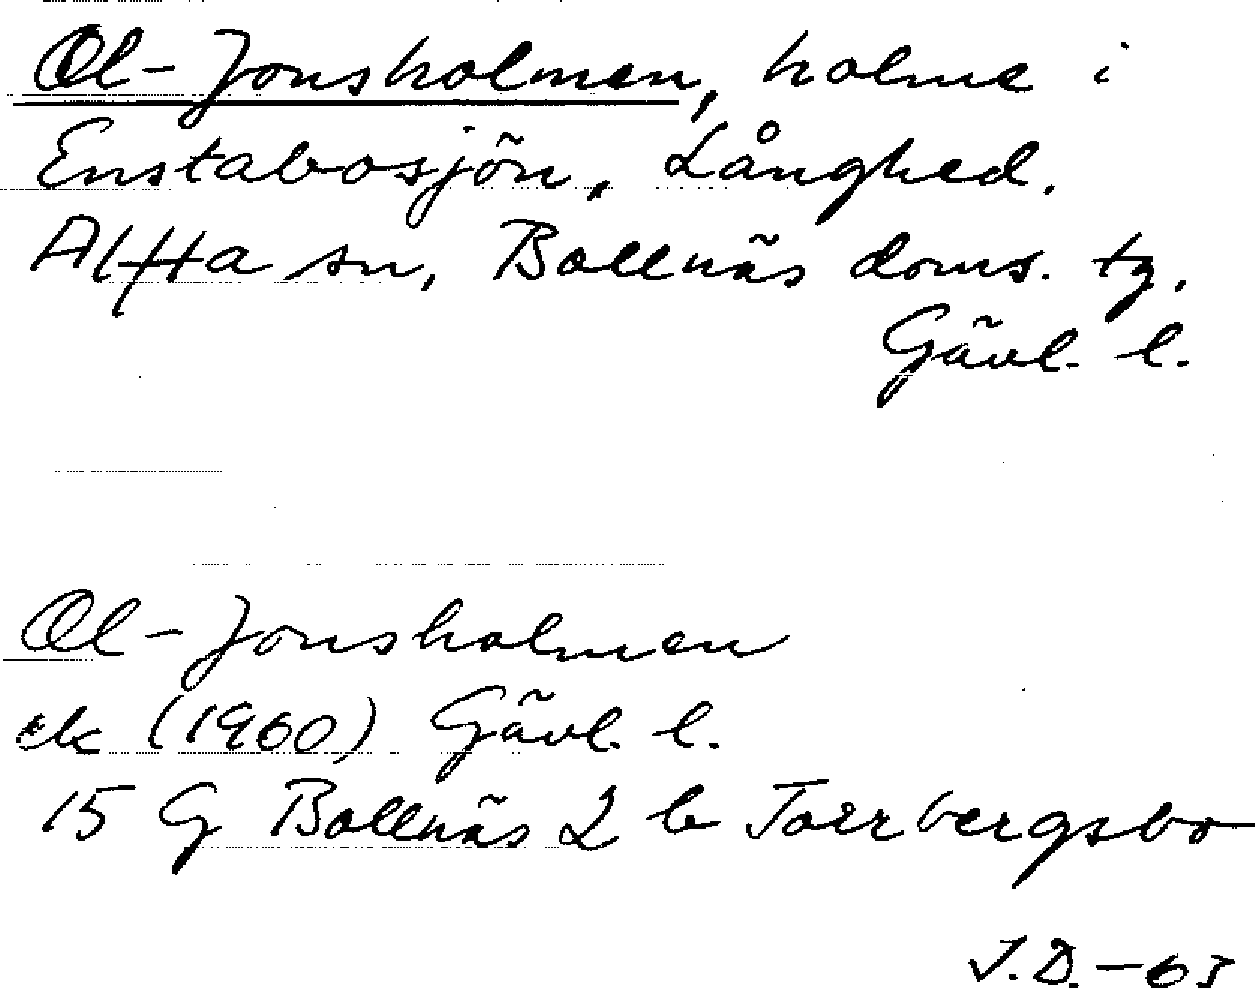 Ol-Jonsholmen, holme i
Enstabosjön, Långhed.
Alfta sn, Bollnäs doms. tg,
Gävl. l.
Ol-Jonsholmen
ek (1960) Gävl. l.
15 G Bollnäs 2 b Torrbergsbo
J.D. -63